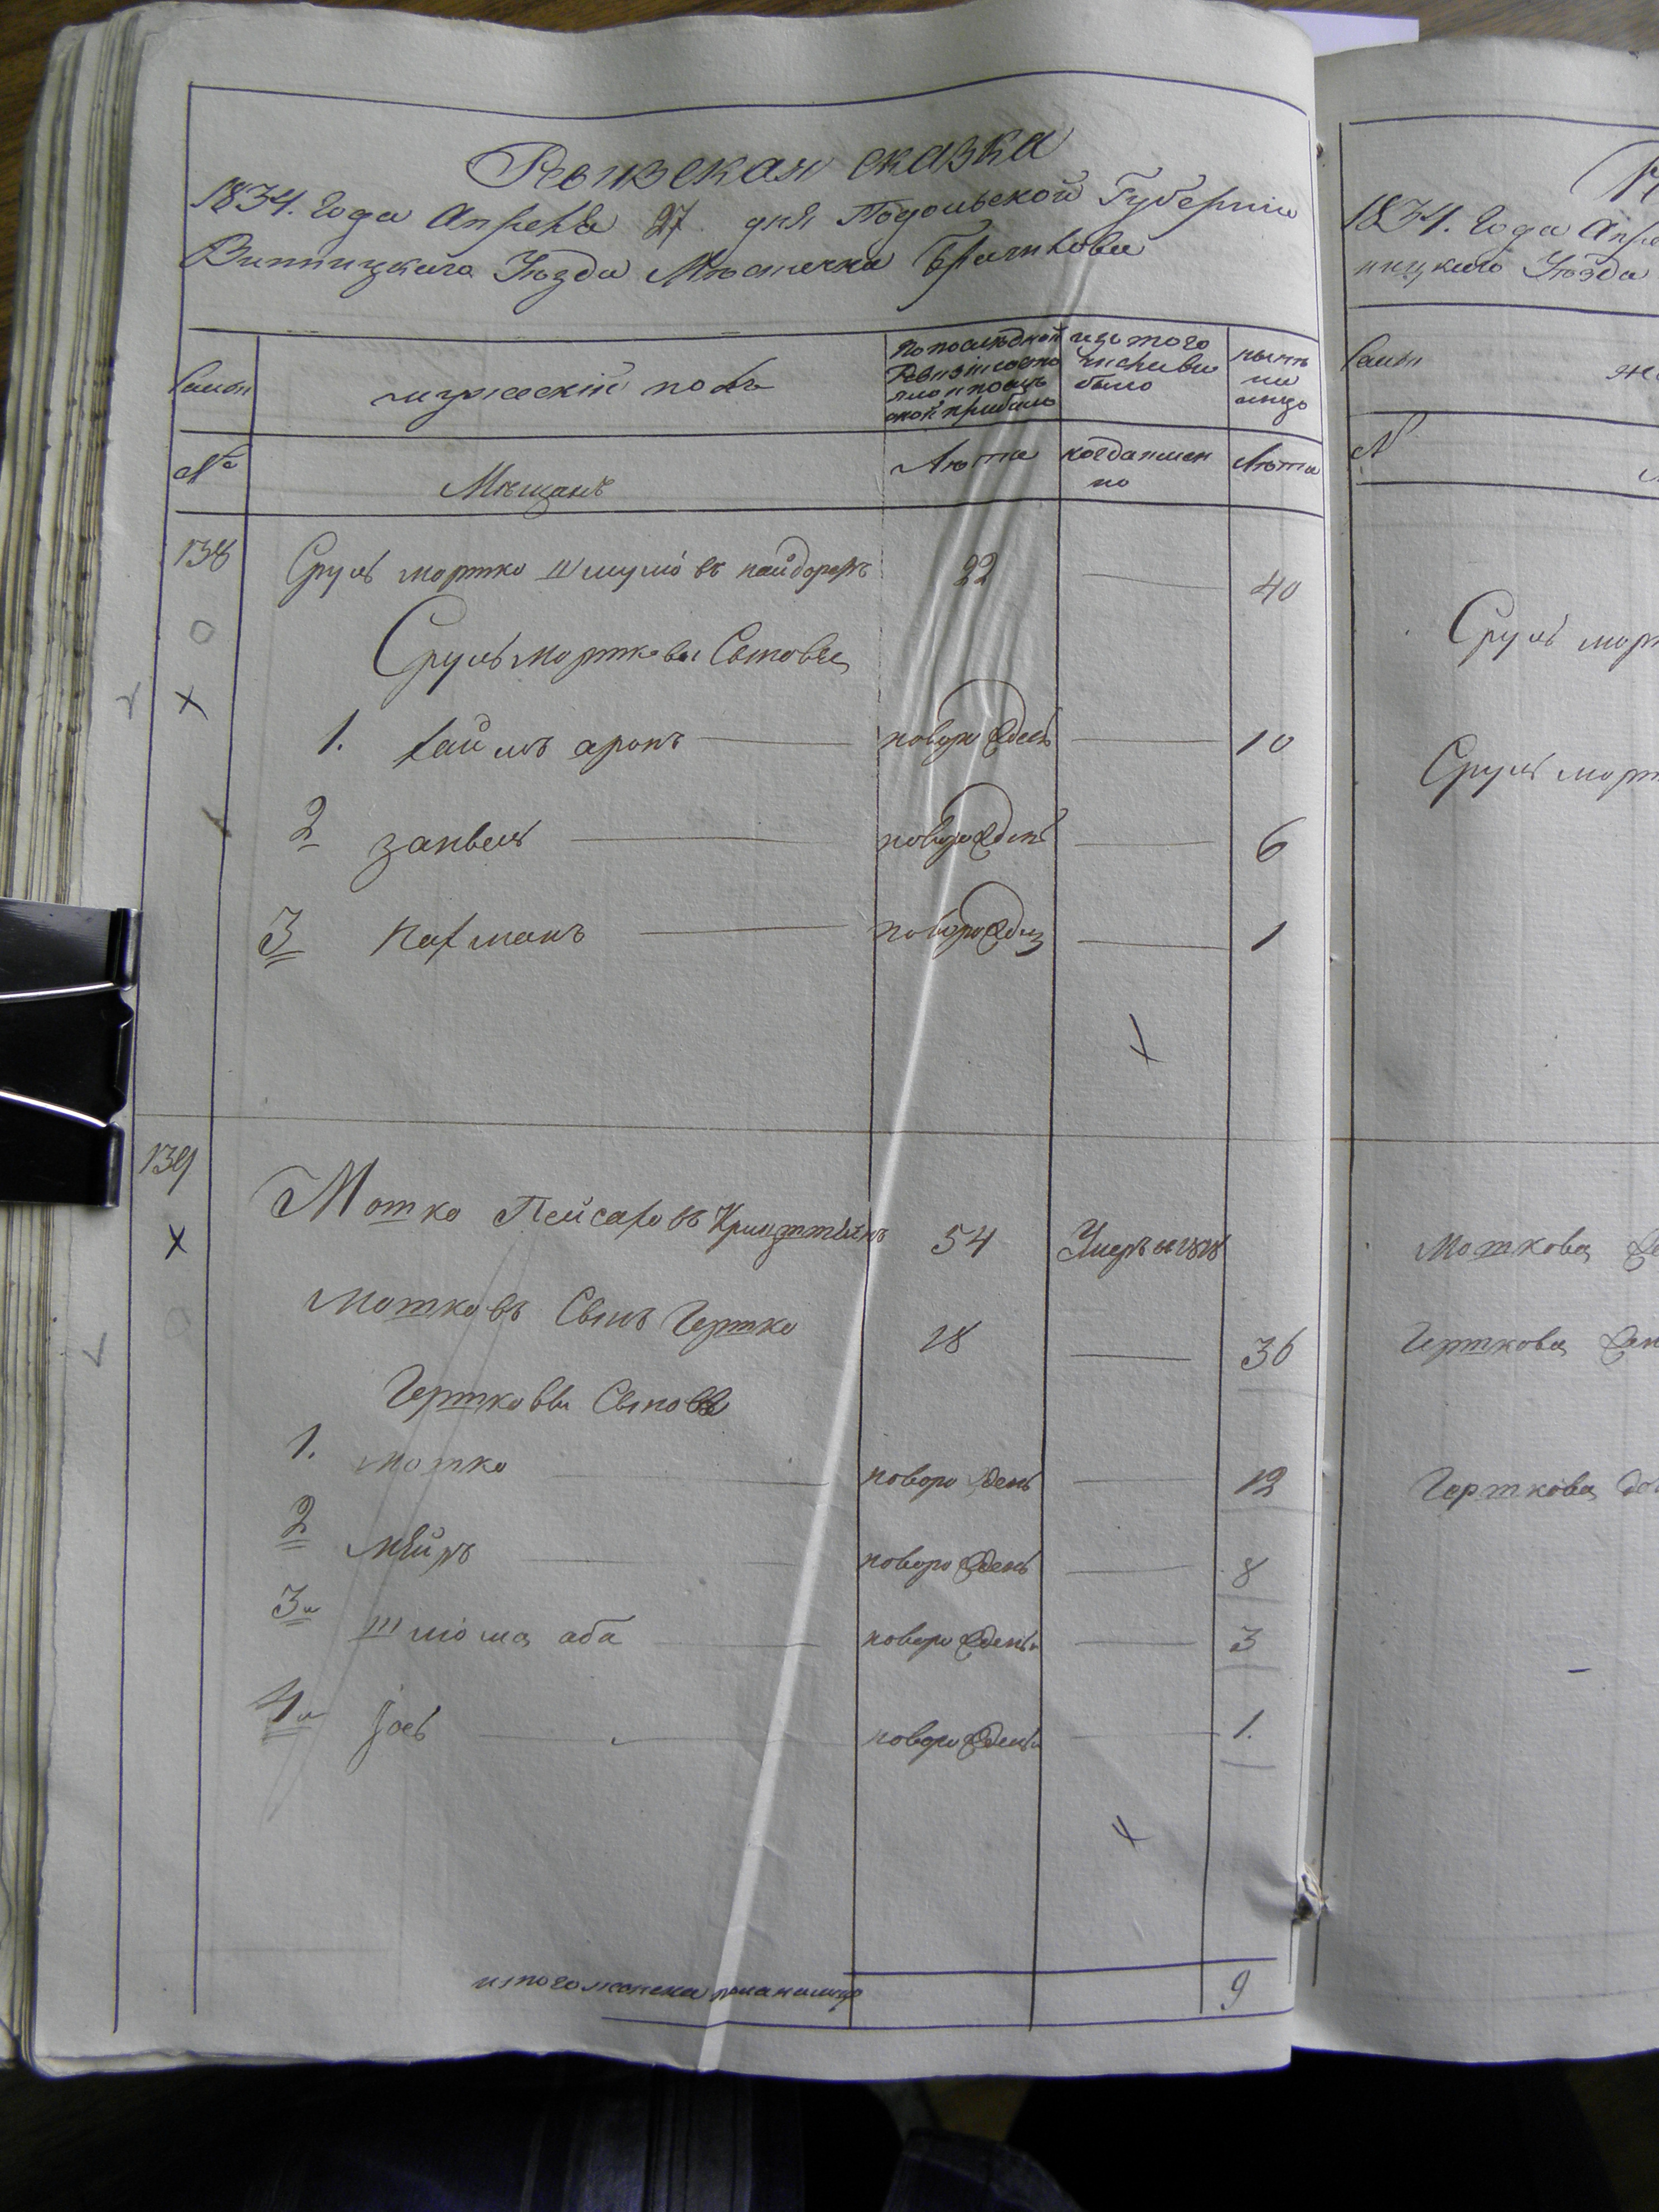 Ревизская сказка
1834. Года Апреля 27 дня Подольской Губерніи
Винницкаго Уѣзда Мѣстечка Браилова
Семьи
мужескій полъ
По последней ревизіи состояло и после оной прибыло
изъ того числа выбыло
нынѣ на лицо
№
Мѣщанъ
Лѣта
когда именно
Лѣта
138
Сруль мортко Шмулёвъ
22
40
Сруль мортковы Сыновья
1. хаимъ аронъ
новорожденъ
10
2 занвель
новорожденъ
6
3 нахманъ
новорожденъ
1
139
Мотко Пейсаховъ
54
Умеръ въ
Мотковъ Сынъ Гершко
18
36
Гершковы Сыновья
1. мотко
новорожденъ
12
2 мейръ
новорожденъ
8
3й шлёма аба
новорожденъ
3
4й Іось
новорожденъ
1.
итого мужеска пола на лицо
9
1834. Года Апре
ницкаго Уѣзда
Семьи
№
Сруль морт
Сруль морт
Моткова
Гершкова
Гершкова